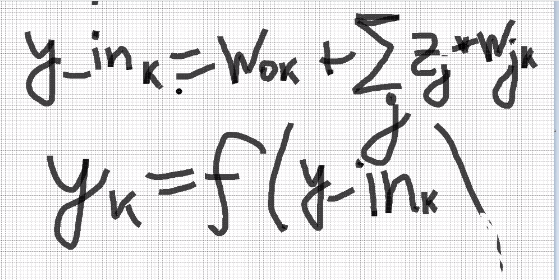 y_in_k = w_0k + Σ_j z_j * w_jk
y_k = f(y-in_k)